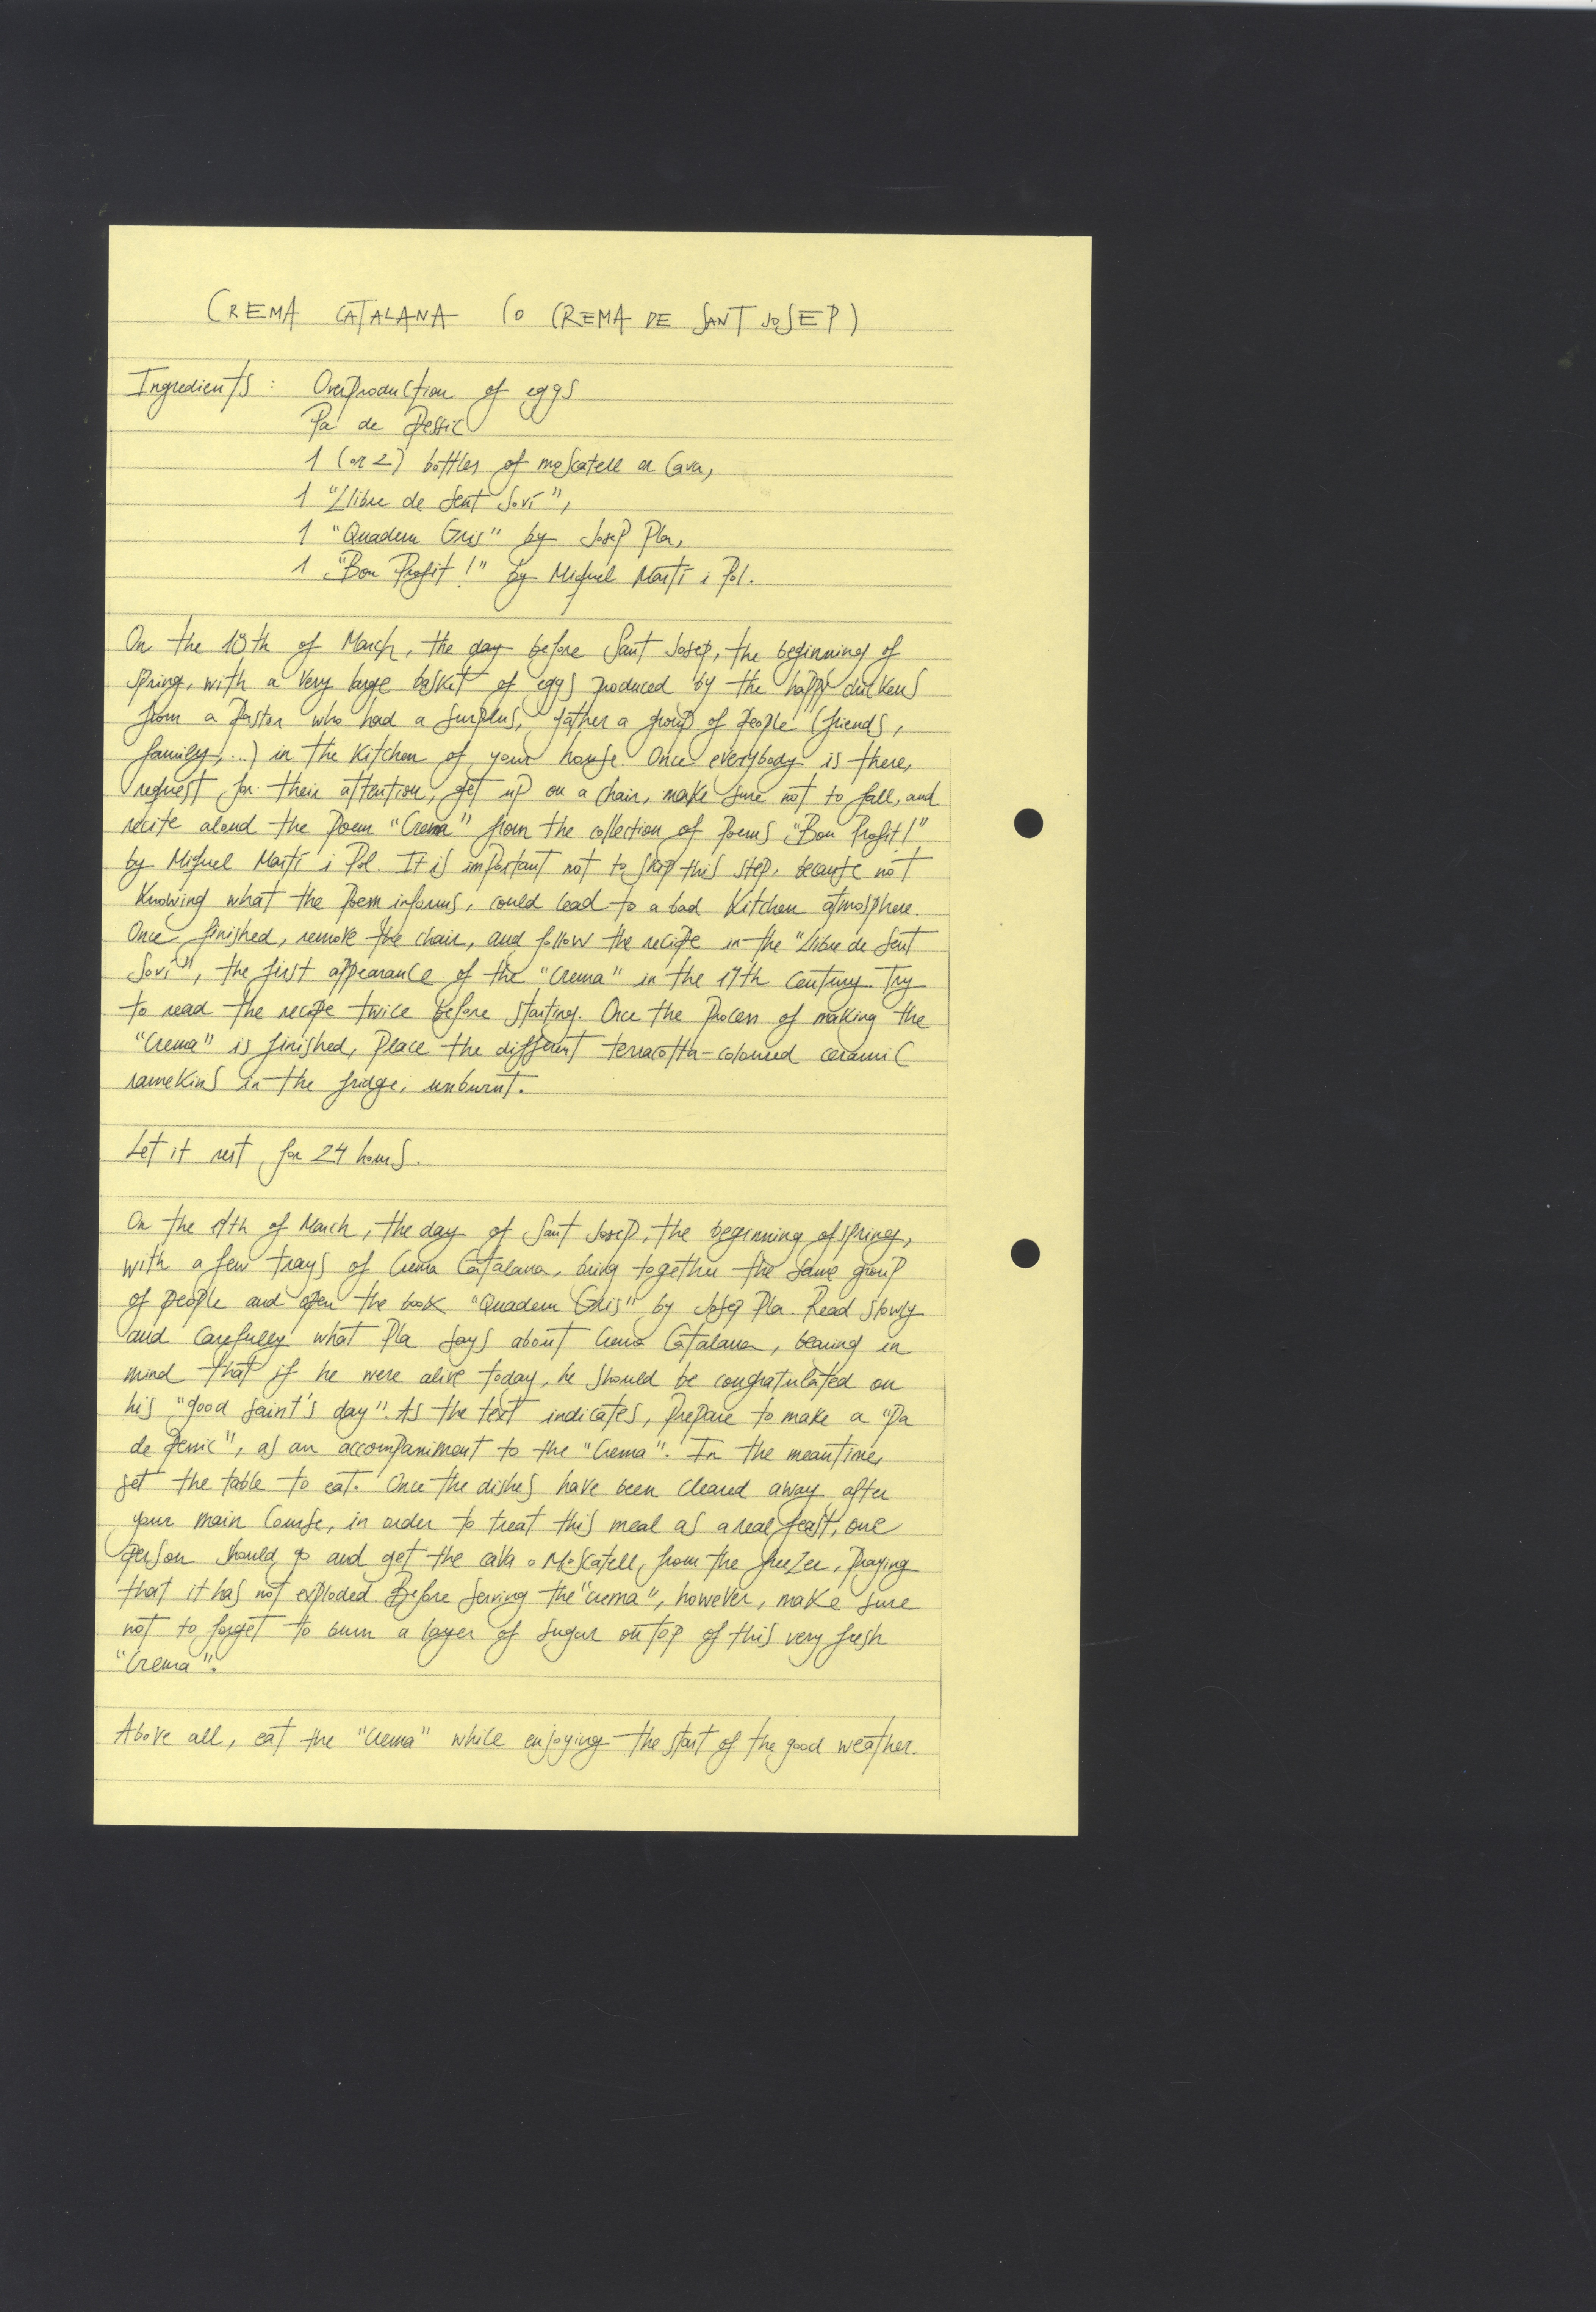 CREMA CATALANA (o CREMA DE SANT JOSEP)
Ingredients: Overproduction of eggs
Pa de pessic
1 (or 2) bottles of moscatell or Cava,
1 "Llibre de Sent Soví",
1 "Quadern Gris" by Josep Pla,
1 "Bon Profit!" by Miquel Martí i Pol.
On the 18th of March, the day before Sant Josep, the beginning of
spring, with a very large basket of eggs produced by the happy chickens
from a pastor who had a surplus, gather a group of people (friends,
family,...) in the kitchen of your house. Once everybody is there,
request for their attention, get up on a chair, make sure not to fall, and
recite aloud the poem "Crema" from the collection of poems "Bon Profit!"
by Miquel Martí i Pol. It is important not to skip this step, because not
knowing what the poem informs, could lead to a bad kitchen atmosphere.
Once finished, remove the chair, and follow the recipe in the "Llibre de Sent
Soví", the first appearance of the "Crema" in the 14th century. Try
to read the recipe twice before starting. Once the process of making the
"Crema" is finished, place the different terracotta-coloured ceramic
ramekins in the fridge, unburnt.
Let it rest for 24 hours.
On the 19th of March, the day of Sant Josep, the beginning of spring,
with a few trays of Crema Catalana, bring together the same group
of people and open the book "Quadern Gris" by Josep Pla. Read slowly
and carefully what Pla says about Crema Catalana, bearing in
mind that if he were alive today, he should be congratulated on
his "good saint's day". As the text indicates, prepare to make a "pa
de pessic", as an accompaniment to the "Crema". In the meantime,
set the table to eat. Once the dishes have been cleared away after
your main course, in order to treat this meal as a real feast, one
person should go and get the cava o Moscatell, from the freezer, praying
that it has not exploded. Before serving the "crema", however, make sure
not to forget to burn a layer of sugar on top of this very fresh
"Crema".
Above all, eat the "Crema" while enjoying the start of the good weather.